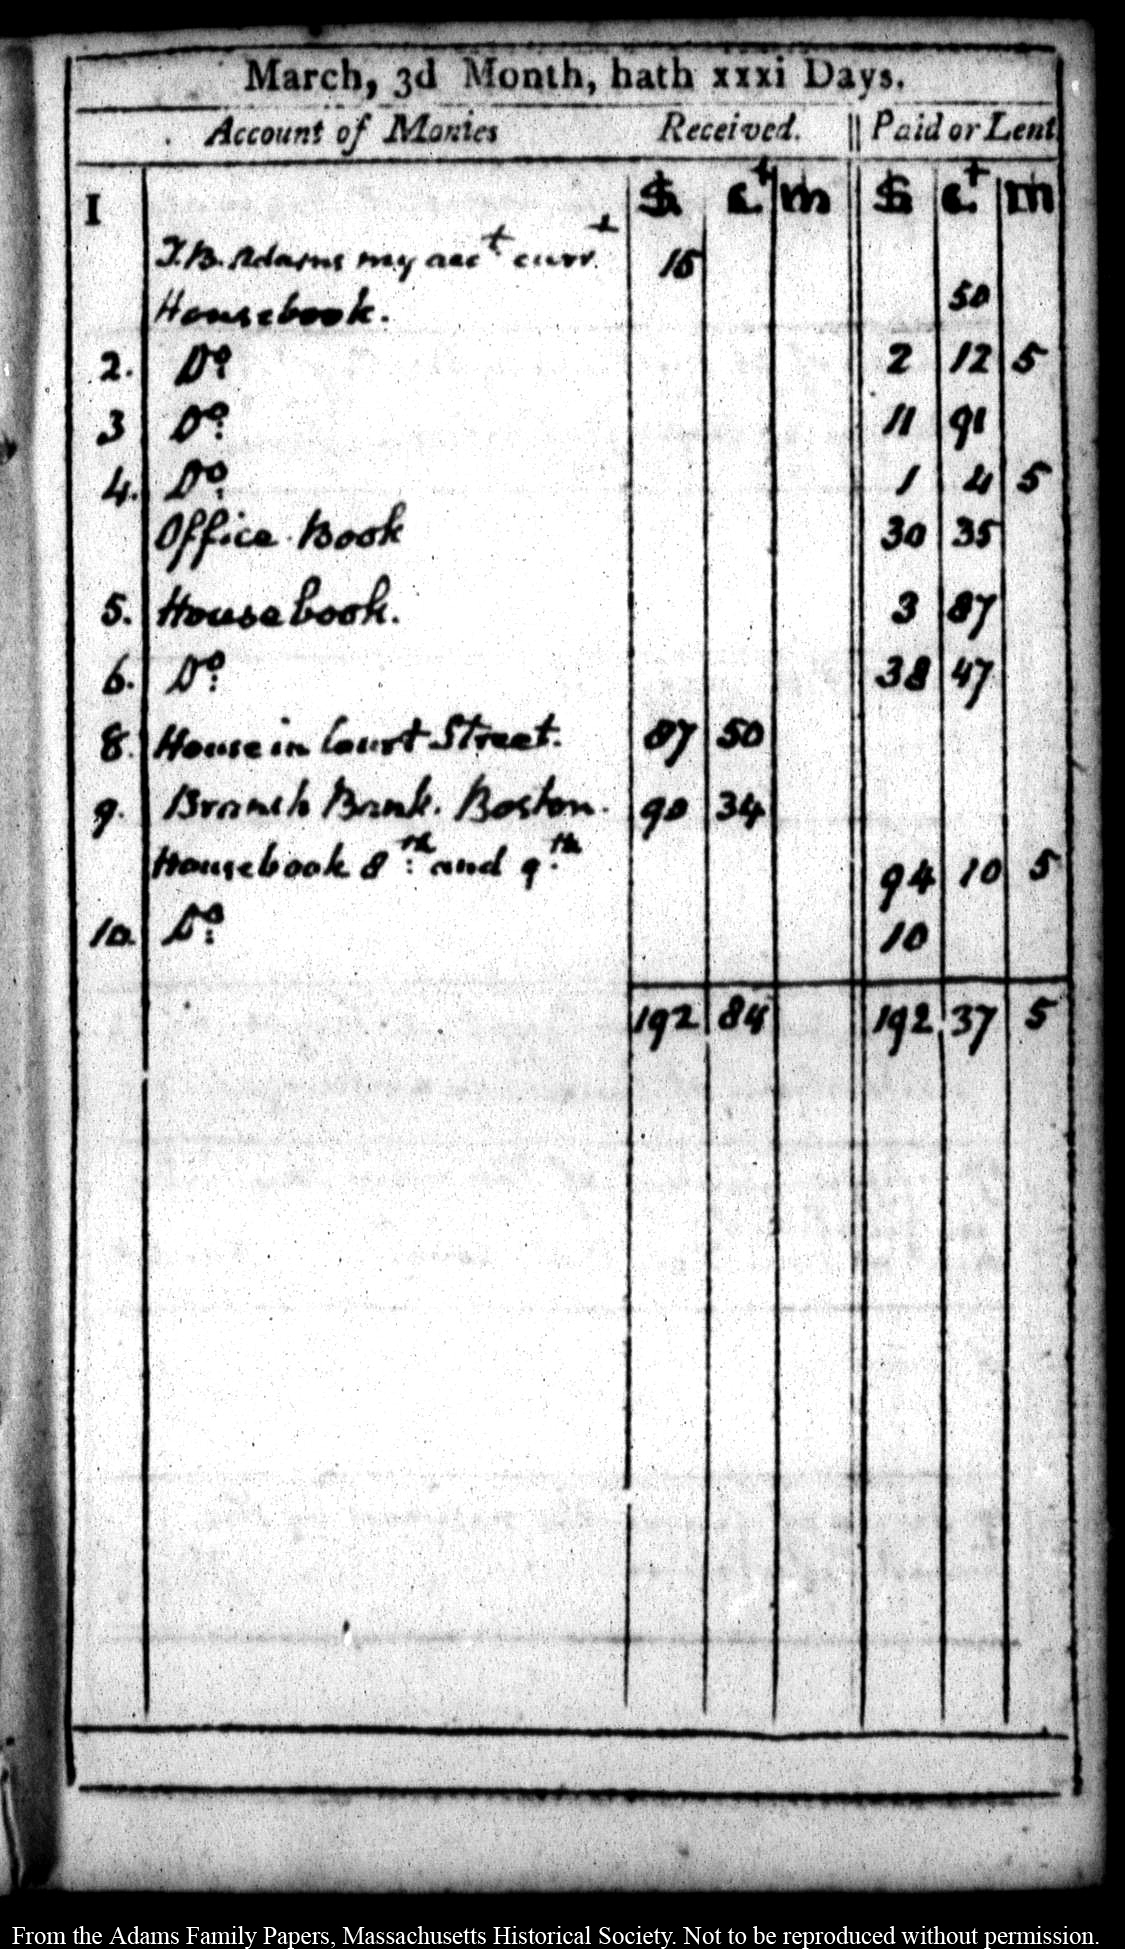 March, 3d Month, hath xxxi Days.
Account of Monies Received. Paid or Lent
1 $ ct m $ ct m
T. B. Adams my acct currt 15
Housebook. 50
2. Do 2 12 5
3 Do 11 91
4. Do 1 4 5
Office Book 30 35
5. House book. 3 87
6. Do 38 47
8. House in Court Street. 87 50
9. Branch Bank. Boston. 90 34
Housebook 8th and 9th 94 10 5
10. Do 10
192 84 192 37 5
From the Adams Family Papers, Massachusetts Historical Society. Not to be reproduced without permission.